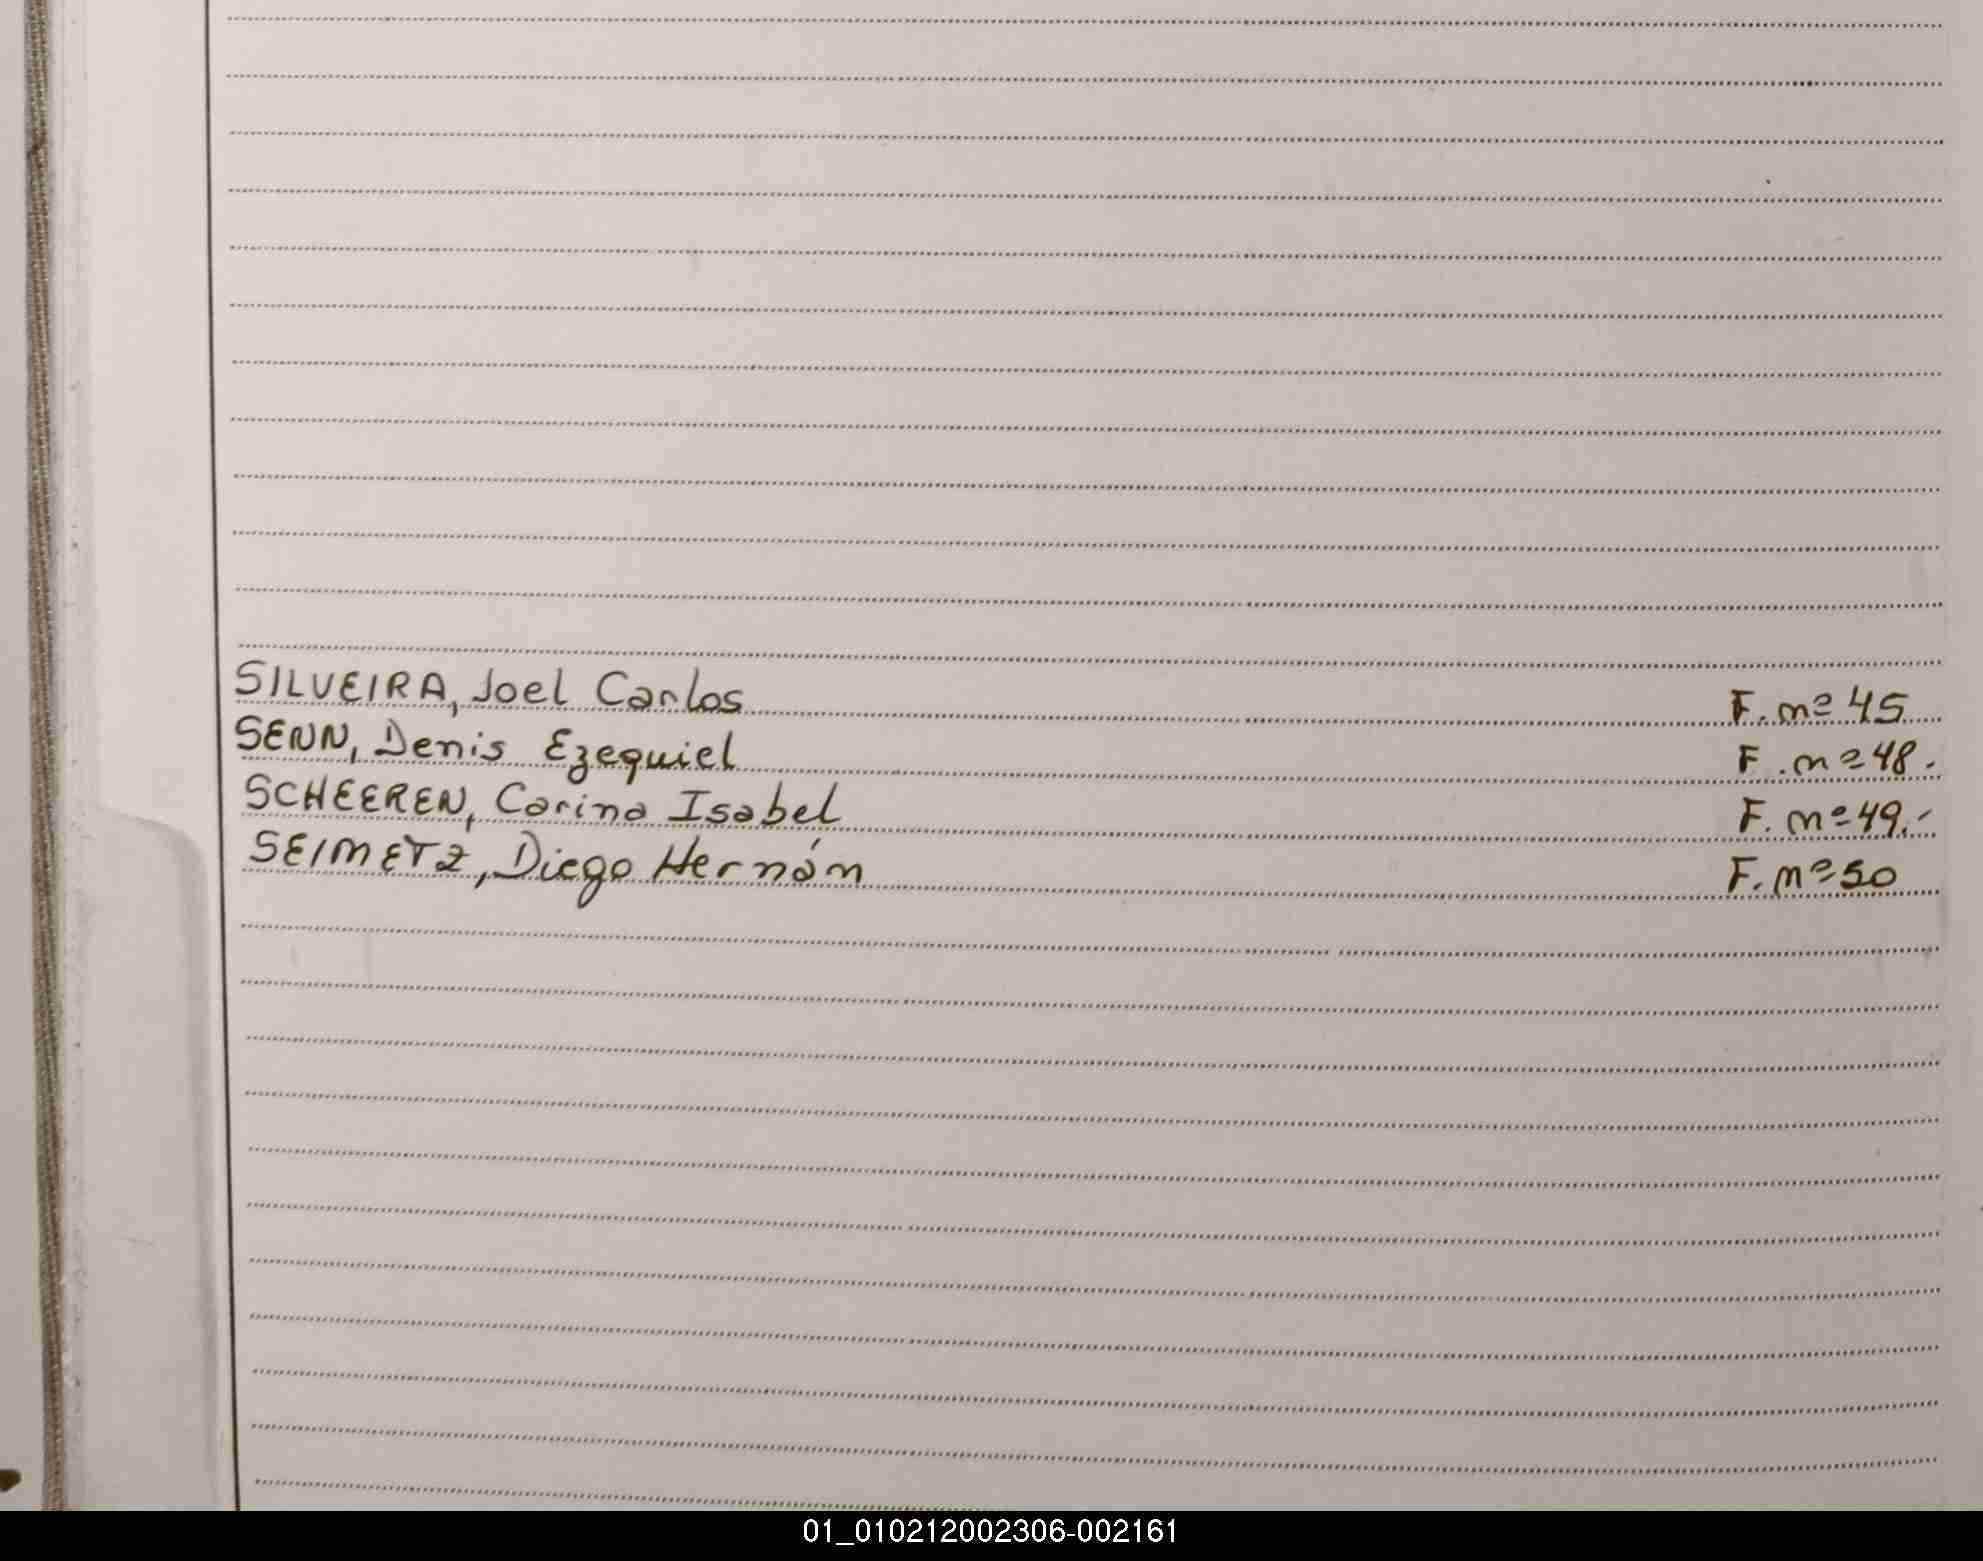 SILVEIRA, Joel Carlos F. nº 45
SENN, Denis Ezequiel F. nº 48.
SCHEEREN, Carina Isabel F. nº 49.-
SEIMETZ, Diego Hernán F. nº 50
01_010212002306-002161